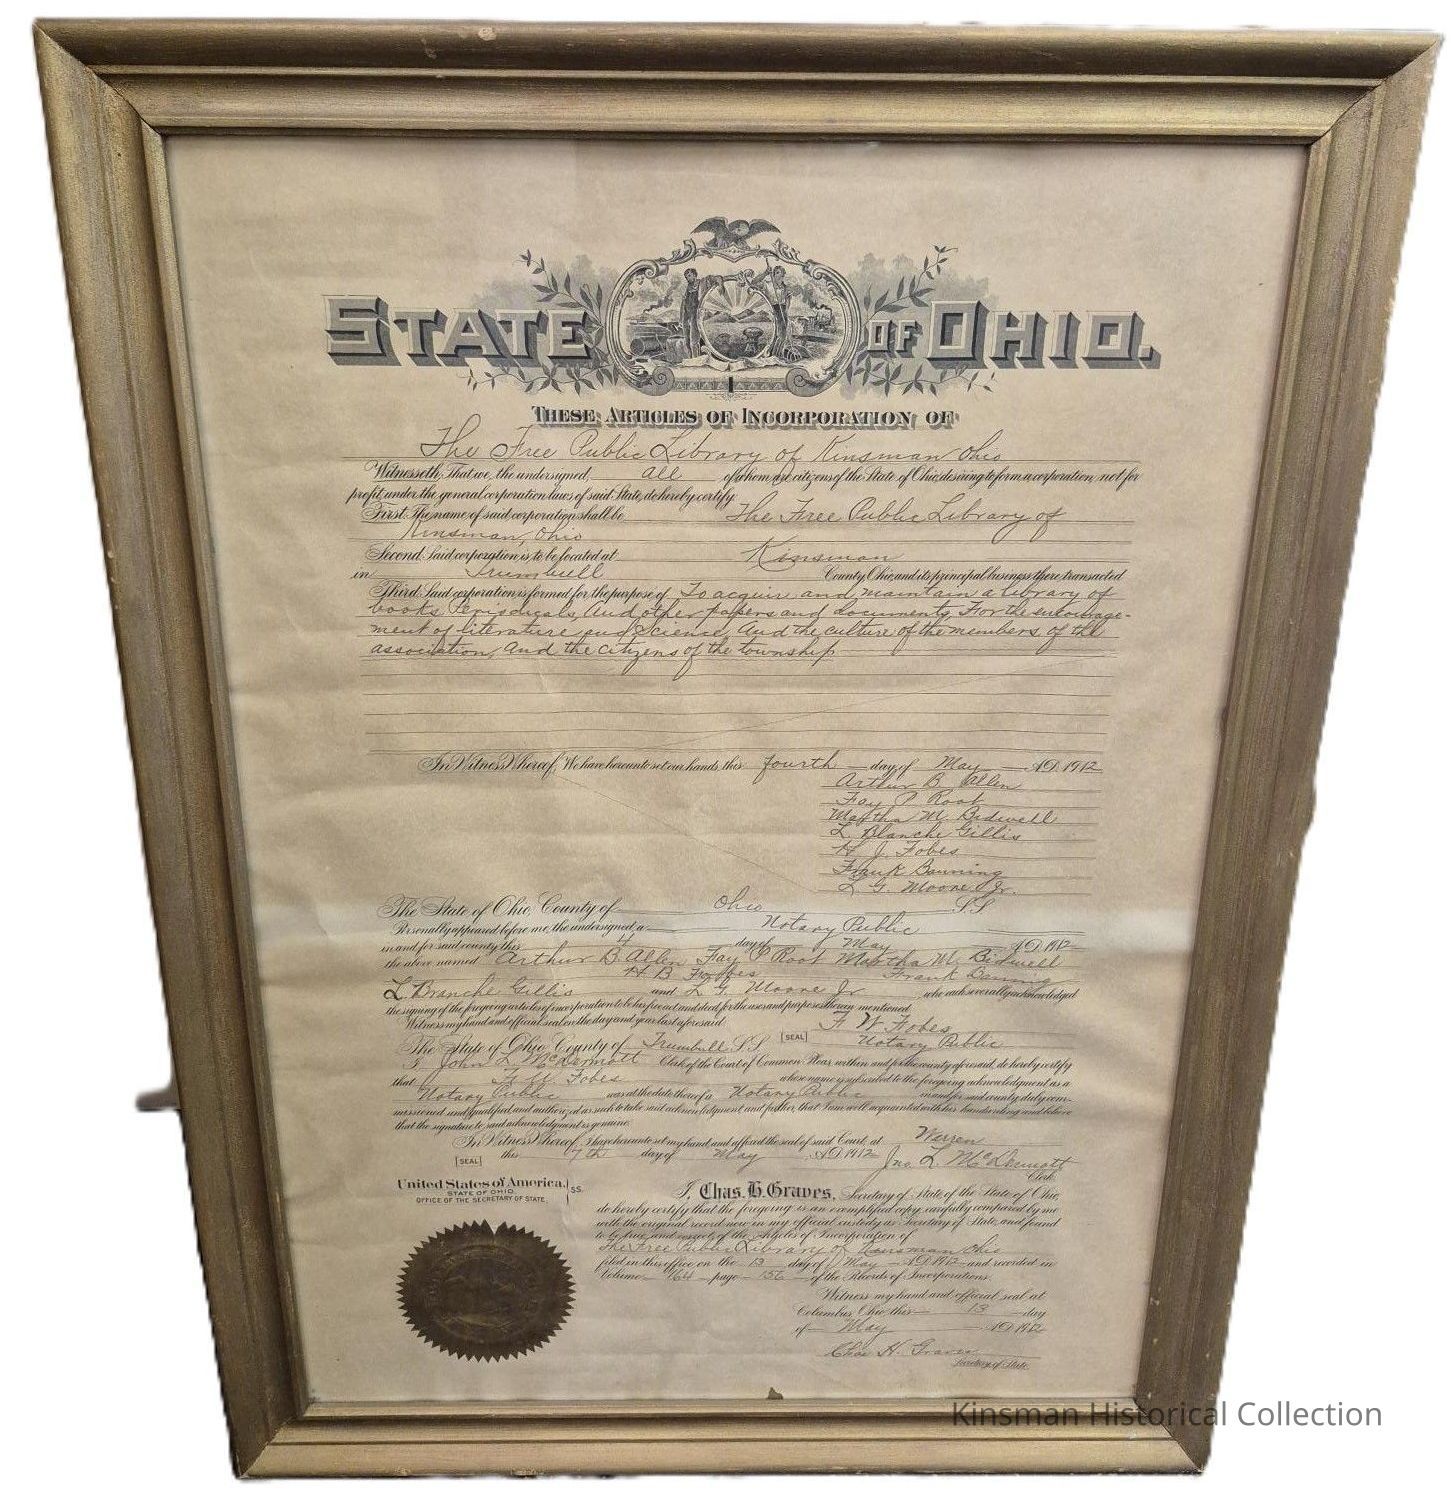 STATE OF OHIO.
THESE ARTICLES OF INCORPORATION OF
The Free Public Library of Kinsman Ohio
Witnesseth, That we, the undersigned, all of whom are citizens of the State of Ohio, desiring to form a corporation, not for
profit, under the general corporation laws of said State, do hereby certify:
First. The name of said corporation shall be The Free Public Library of
Kinsman, Ohio
Second. Said corporation is to be located at Kinsman
in Trumbull County, Ohio, and its principal business there transacted
Third. Said corporation is formed for the purpose of To acquire and maintain a library of
books, Periodicals, And other papers and documents, For the encourage-
ment of literature and Science, And the culture of the members of the
association, And the citizens of the township
In Witness Whereof, We have hereunto set our hands, this fourth day of May A.D. 1912
Arthur B Allen
Fay P Root
Martha M. Bidwell
L. Blanche Gillis
H. J. Fobes
Frank Banning
L G. Moore Jr.
The State of Ohio, County of Ohio SS
Personally appeared before me, the undersigned, a Notary Public
in and for said county this 4 day of May A.D. 1912
the above named Arthur B. Allen Fay P Root Martha M. Bidwell
H B Fobes Frank Banning
L. Branche Gillis and L G Moore Jr who each severally acknowledged
the signing of the foregoing articles of incorporation to be his free act and deed, for the uses and purposes therein mentioned.
Witness my hand and official seal on the day and year last aforesaid.
F W Fobes
SEAL Notary Public
The State of Ohio, County of Trumbull SS
I John L McDermott Clerk of the Court of Common Pleas, within and for the county aforesaid, do hereby certify
that F. W. Fobes whose name is subscribed to the foregoing acknowledgment as a
Notary Public was at the date thereof a Notary Public in and for said county, duly com-
missioned and qualified and authorized as such to take said acknowledgment and further, that I am well acquainted with his handwriting and believe
that the signature to said acknowledgment is genuine.
In Witness Whereof, I have hereunto set my hand and affixed the seal of said Court, at Warren
SEAL this 7th day of May A.D. 1912
Jno. L. McDermott
Clerk.
United States of America, SS.
STATE OF OHIO,
OFFICE OF THE SECRETARY OF STATE,
I, Chas. H. Graves, Secretary of State of the State of Ohio,
do hereby certify that the foregoing is an exemplified copy, carefully compared by me
with the original record now in my official custody as Secretary of State, and found
to be true and correct, of the Articles of Incorporation of
The Free Public Library of Kinsman Ohio
filed in this office on the 13 day of May A.D. 1912 and recorded in
Volume 164 page 156 of the Records of Incorporations.
Witness my hand and official seal at
Columbus, Ohio, this 13 day
of May A.D. 1912
Chas H. Graves
Secretary of State.
Kinsman Historical Collection